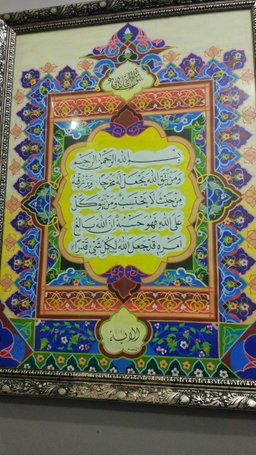 بسم الله الرحمن الرحيم
ومن يتق الله يجعل له مخرجا ويرزقه
من حيث لا يحتسب ومن يتوكل
على الله فهو حسبه إن الله بالغ
أمره قد جعل الله لكل شيء قدرا